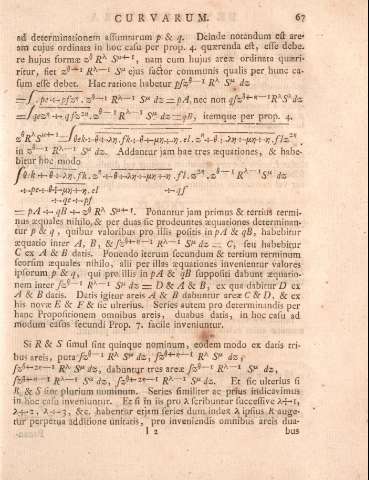 CURVARUM. 67
ad determinationem assumtarum p & q. Deinde notandum est are-
am cujus ordinata in hoc casu per prop. 4. quærenda est, esse debe-
re hujus formæ z^θ R^λ S^μ+1, nam cum hujus areæ ordinata quæri-
ritur, fiet z^θ−1 R^λ−1 S^μ ejus factor communis qualis per hunc ca-
sum esse debet. Hac ratione habetur
in z^θ−1 R^λ−1 S^μ dz. Addantur jam hae tres æquationes, & habe-
bitur hoc modo
= pA + qB + z^θ R^λ S^μ+1. Ponantur jam primus & tertius termi-
nus æquales nihilo, & per duas sic prodeuntes æquationes determinan-
tur p & q, quibus valoribus pro illis positis in pA & qB, habebitur
æquatio inter A, B, & = C, seu habebitur
C ex A & B datis. Ponendo iterum secundum & tertium terminum
seorsim æquales nihilo, alii per illas æquationes invenientur valores
ipsorum p & q, qui pro illis in pA & qB suppositi dabunt æquatio-
nem inter = D & A & B, ex qua dabitur D ex
A & B datis. Datis igitur areis A & B dabuntur areæ C & D, & ex
his novæ E & F & sic ulterius. Series autem pro determinandis per
hanc Propositionem omnibus areis, duabus datis, in hoc casu ad
modum casus secundi Prop. 7. facile invenitur.
Si R & S simul sint quinque nominum, eodem modo ex datis tri-
bus areis, puta
dabuntur tres areæ
Et sic ulterius si
R & S sint plurium nominum. Series similiter ac prius indicavimus
in hoc casu invenitur. Et si in iis pro λ scribuntur successive λ+1,
λ+2, λ+3, &c. habentur etiam series dum index λ ipsius R auge-
tur perpetua additione unitatis, pro inveniendis omnibus areis dua-
I 2 bus